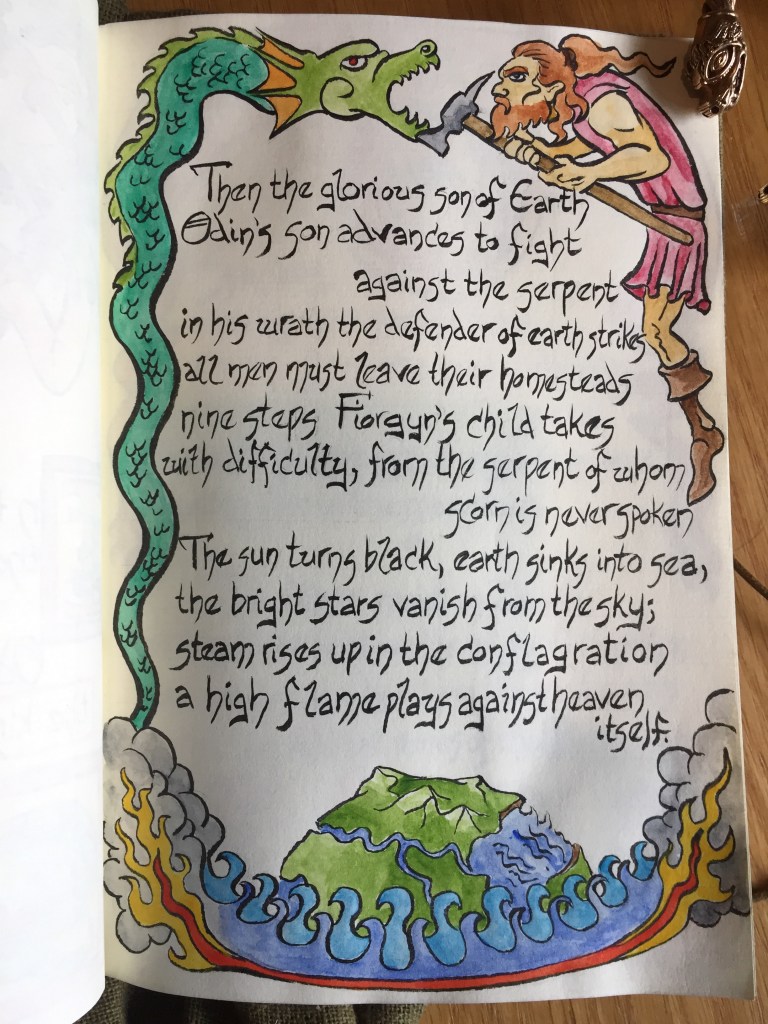 Then the glorious son of Earth
Odin's son advances to fight
against the serpent
in his wrath the defender of earth strikes
all men must leave their homesteads
nine steps Fiorgyn's child takes
with difficulty, from the serpent of whom
scorn is never spoken
The sun turns black, earth sinks into sea,
the bright stars vanish from the sky;
steam rises up in the conflagration
a high flame plays against heaven
itself.